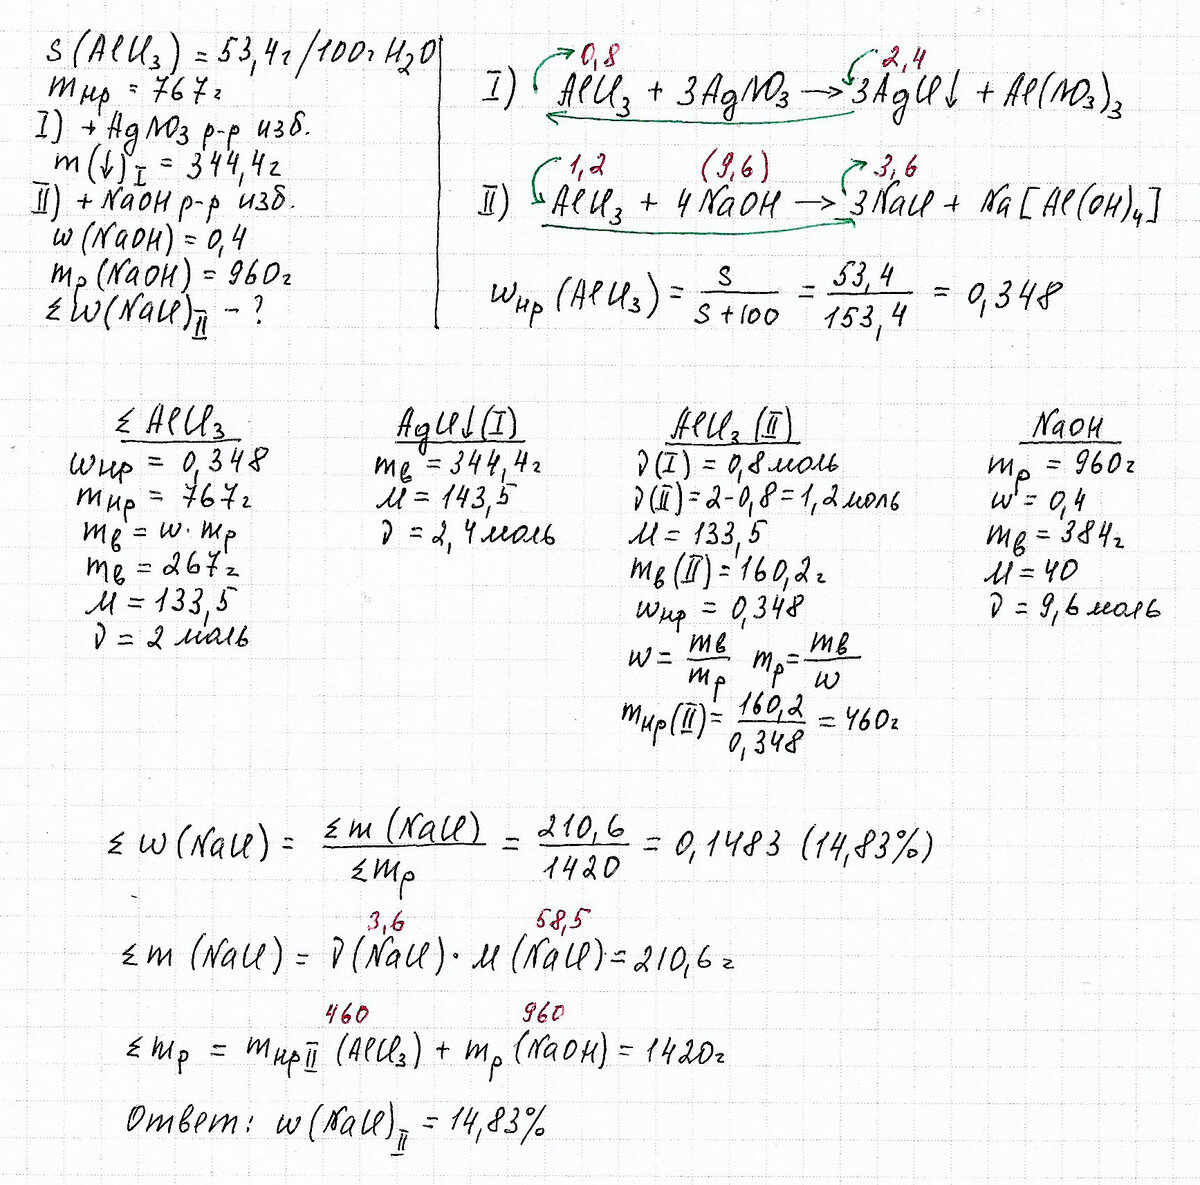 S(AlCl₃) = 53,4г/100г H₂O
mнр = 767г
I) + AgNO₃ р-р изб.
m(↓)I = 344,4г
II) + NaOH р-р изб.
w(NaOH) = 0,4
mр(NaOH) = 960г
Σw(NaCl)II - ?
0,8 2,4
I) AlCl₃ + 3AgNO₃ → 3AgCl↓ + Al(NO₃)₃
1,2 (9,6) 3,6
II) AlCl₃ + 4NaOH → 3NaCl + Na[Al(OH)₄]
wнр(AlCl₃) = S/(S+100) = 53,4/153,4 = 0,348
Σ AlCl₃
wнр = 0,348
mнр = 767г
mв = w · mр
mв = 267г
M = 133,5
ν = 2 моль
AgCl↓(I)
mв = 344,4г
M = 143,5
ν = 2,4 моль
AlCl₃ (II)
ν(I) = 0,8 моль
ν(II) = 2-0,8 = 1,2 моль
M = 133,5
mв(II) = 160,2г
wнр = 0,348
w = mв/mр mр = mв/w
mнр(II) = 160,2/0,348 = 460г
NaOH
mр = 960г
w = 0,4
mв = 384г
M = 40
ν = 9,6 моль
Σ w(NaCl) = Σm(NaCl)/Σmр = 210,6/1420 = 0,1483 (14,83%)
3,6 58,5
Σm(NaCl) = ν(NaCl) · M(NaCl) = 210,6г
460 960
Σmр = mнрII(AlCl₃) + mр(NaOH) = 1420г
Ответ: w(NaCl)II = 14,83%